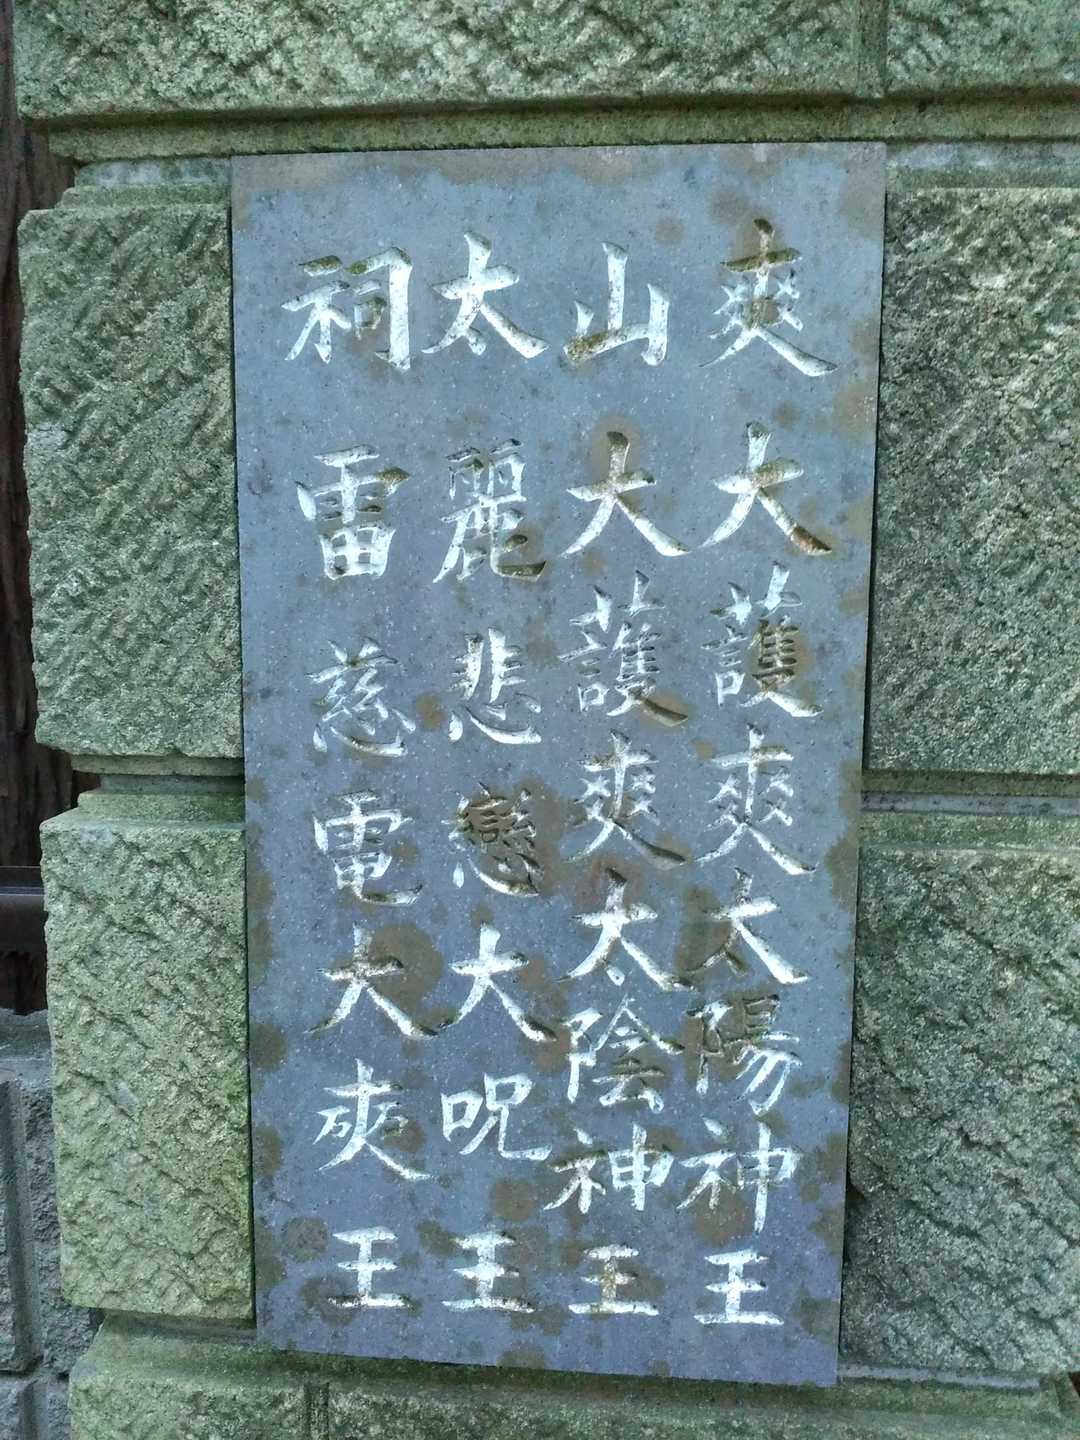 爽大護爽太陽神王
山大護爽太陰神王
太麗悲戀大呪王
祠雷慈電大爽王